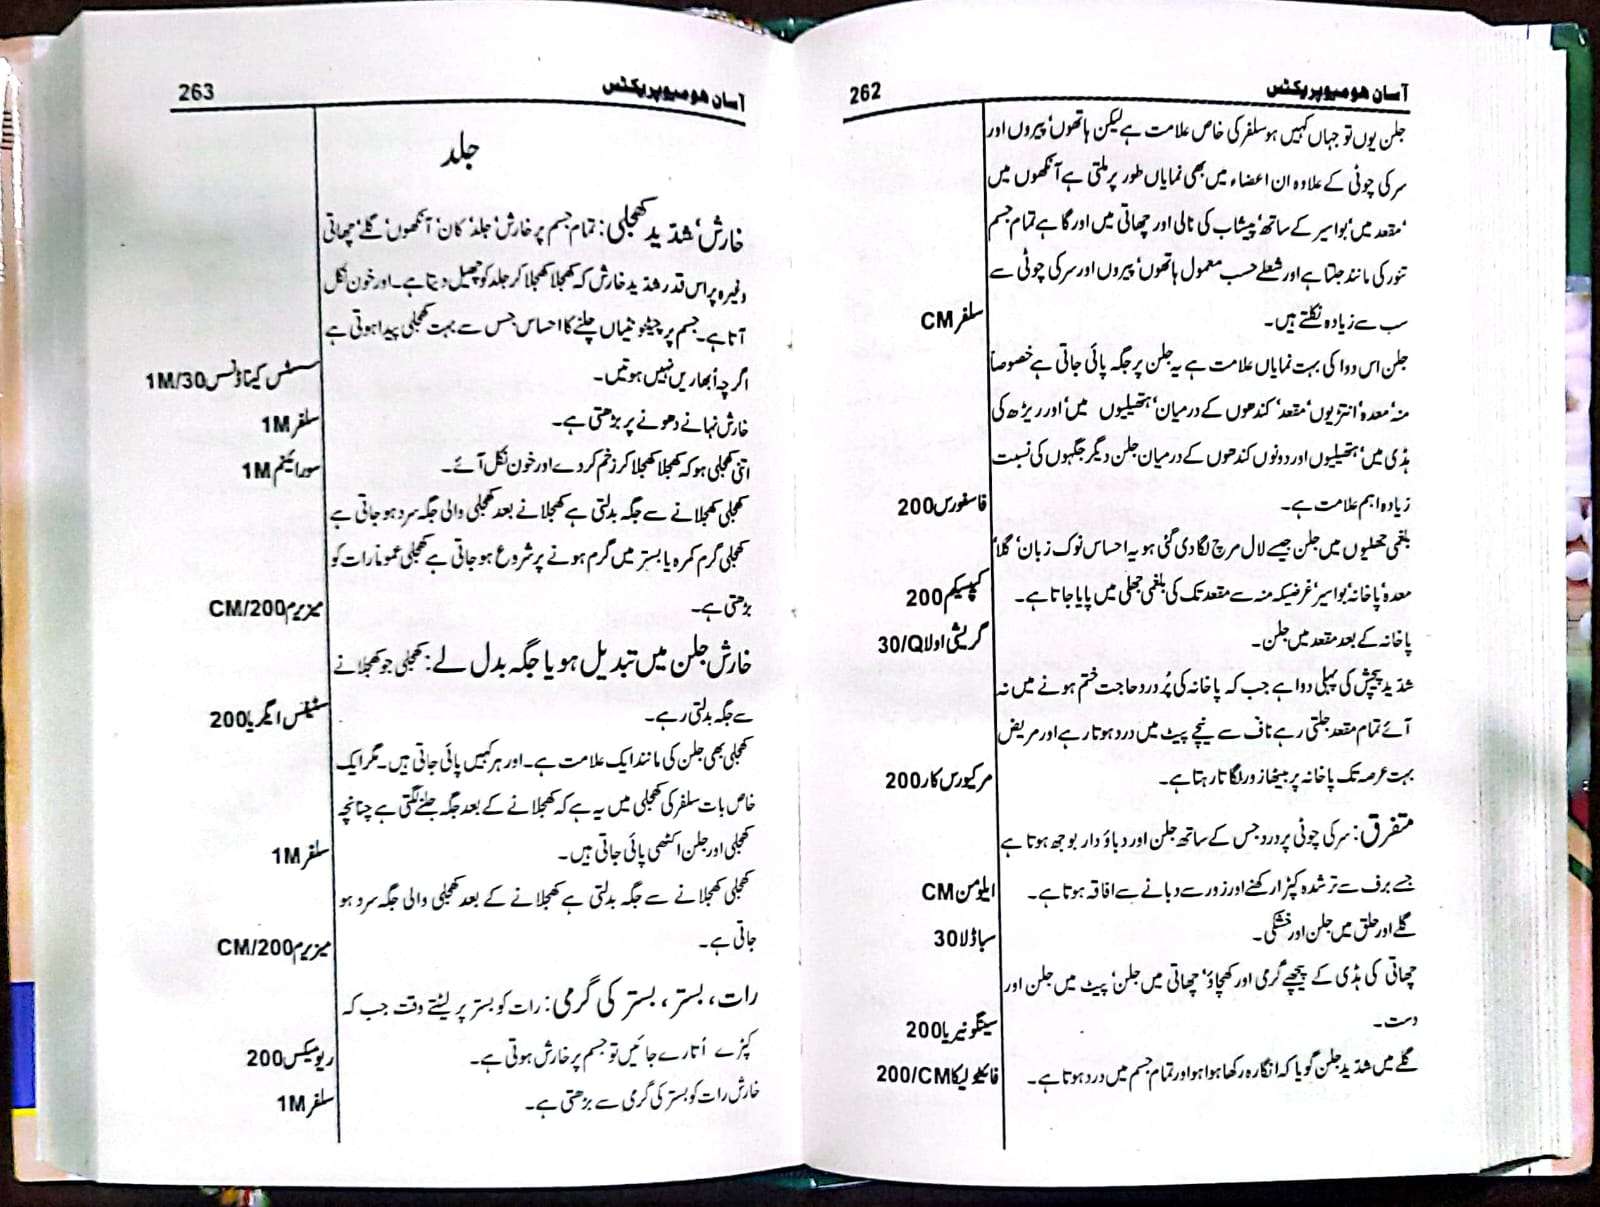 آسان ہومیوپریکٹس
262
جلن یوں تو جہاں کہیں ہو سلفر کی خاص علامت ہے لیکن ہاتھوں' پیروں اور
سر کی چوٹی کے علاوہ ان اعضاء میں بھی نمایاں طور پر ملتی ہے آنکھوں میں
'مقعد میں' بواسیر کے ساتھ' پیشاب کی نالی اور چھاتی میں اور گاہے تمام جسم
تنور کی مانند جلتا ہے اور شعلے حسب معمول ہاتھوں' پیروں اور سر کی چوٹی سے
سب سے زیادہ نکلتے ہیں۔ سلفر CM
جلن اس دوا کی بہت نمایاں علامت ہے یہ جلن ہر جگہ پائی جاتی ہے خصوصاً
منہ' معدہ' انتڑیوں' مقعد' کندھوں کے درمیان' ہتھیلیوں میں' اور ریڑھ کی
ہڈی میں' ہتھیلیوں اور دونوں کندھوں کے درمیان جلن دیگر جگہوں کی نسبت
زیادہ اہم علامت ہے۔ فاسفورس 200
بلغمی جھلیوں میں جلن جیسے لال مرچ لگا دی گئی ہو یہ احساس نوک زبان' گلا'
معدہ' پاخانہ' بواسیر' غرضیکہ منہ سے مقعد تک کی بلغمی جھلی میں پایا جاتا ہے۔ کیپسیکم 200
پاخانہ کے بعد مقعد میں جلن۔ گریشی اولا 30/Q
شدید پیچش کی پہلی دوا ہے جب کہ پاخانہ کی پُر درد حاجت ختم ہونے میں نہ
آئے تمام مقعد جلتی رہے ناف سے نیچے پیٹ میں درد ہوتا رہے اور مریض
بہت عرصہ تک پاخانہ پر بیٹھا زور لگاتا رہتا ہے۔ مرکیورس کار 200
متفرق: سر کی چوٹی پر درد جس کے ساتھ جلن اور دباؤ دار بوجھ ہوتا ہے
جسے برف سے تر شدہ کپڑا رکھنے اور زور سے دبانے سے افاقہ ہوتا ہے۔ ایلومن CM
گلے اور حلق میں جلن اور خشکی۔ سباڈلا 30
چھاتی کی ہڈی کے پیچھے گرمی اور کھچاؤ' چھاتی میں جلن' پیٹ میں جلن اور
دست۔ سینگونیریا 200
گلے میں شدید جلن گویا کہ انگارہ رکھا ہوا ہو اور تمام جسم میں درد ہوتا ہے۔ فائیٹولیکا 200/CM
آسان ہومیوپریکٹس
263
جلد
خارش' شدید کھجلی: تمام جسم پر خارش' جلد' کان' آنکھوں' گلے' چھاتی
وغیرہ پر اس قدر شدید خارش کہ کھجلا کھجلا کر جلد کو چھیل دیتا ہے۔ اور خون نکل
آتا ہے۔ جسم پر چیونٹیاں چلنے کا احساس جس سے بہت کھجلی پیدا ہوتی ہے
اگرچہ اُبھاریں نہیں ہوتیں۔ سسٹس کیناڈنسس 1M/30
خارش نہانے دھونے پر بڑھتی ہے۔ سلفر 1M
اتنی کھجلی ہو کہ کھجلا کھجلا کر زخم کر دے اور خون نکل آئے۔ سورائنم 1M
کھجلی کھجلانے سے جگہ بدلتی ہے کھجلانے بعد کھجلی والی جگہ سرد ہو جاتی ہے
کھجلی گرم کمرہ یا بستر میں گرم ہونے پر شروع ہو جاتی ہے کھجلی عموماً رات کو
بڑھتی ہے۔ میزیرم CM/200
خارش جلن میں تبدیل ہو یا جگہ بدل لے: کھجلی جو کھجلانے
سے جگہ بدلتی رہے۔ سٹیفس ایگریا 200
کھجلی بھی جلن کی مانند ایک علامت ہے۔ اور ہر کہیں پائی جاتی ہیں۔ مگر ایک
خاص بات سلفر کی کھجلی میں یہ ہے کہ کھجلانے کے بعد جگہ جلنے لگتی ہے چنانچہ
کھجلی اور جلن اکٹھی پائی جاتی ہیں۔ سلفر 1M
کھجلی کھجلانے سے جگہ بدلتی ہے کھجلانے کے بعد کھجلی والی جگہ سرد ہو
جاتی ہے۔ میزیرم CM/200
رات، بستر، بستر کی گرمی: رات کو بستر پر لیٹتے وقت جب کہ
کپڑے اُتارے جائیں تو جسم پر خارش ہوتی ہے۔ ریومیکس 200
خارش رات کو بستر کی گرمی سے بڑھتی ہے۔ سلفر 1M